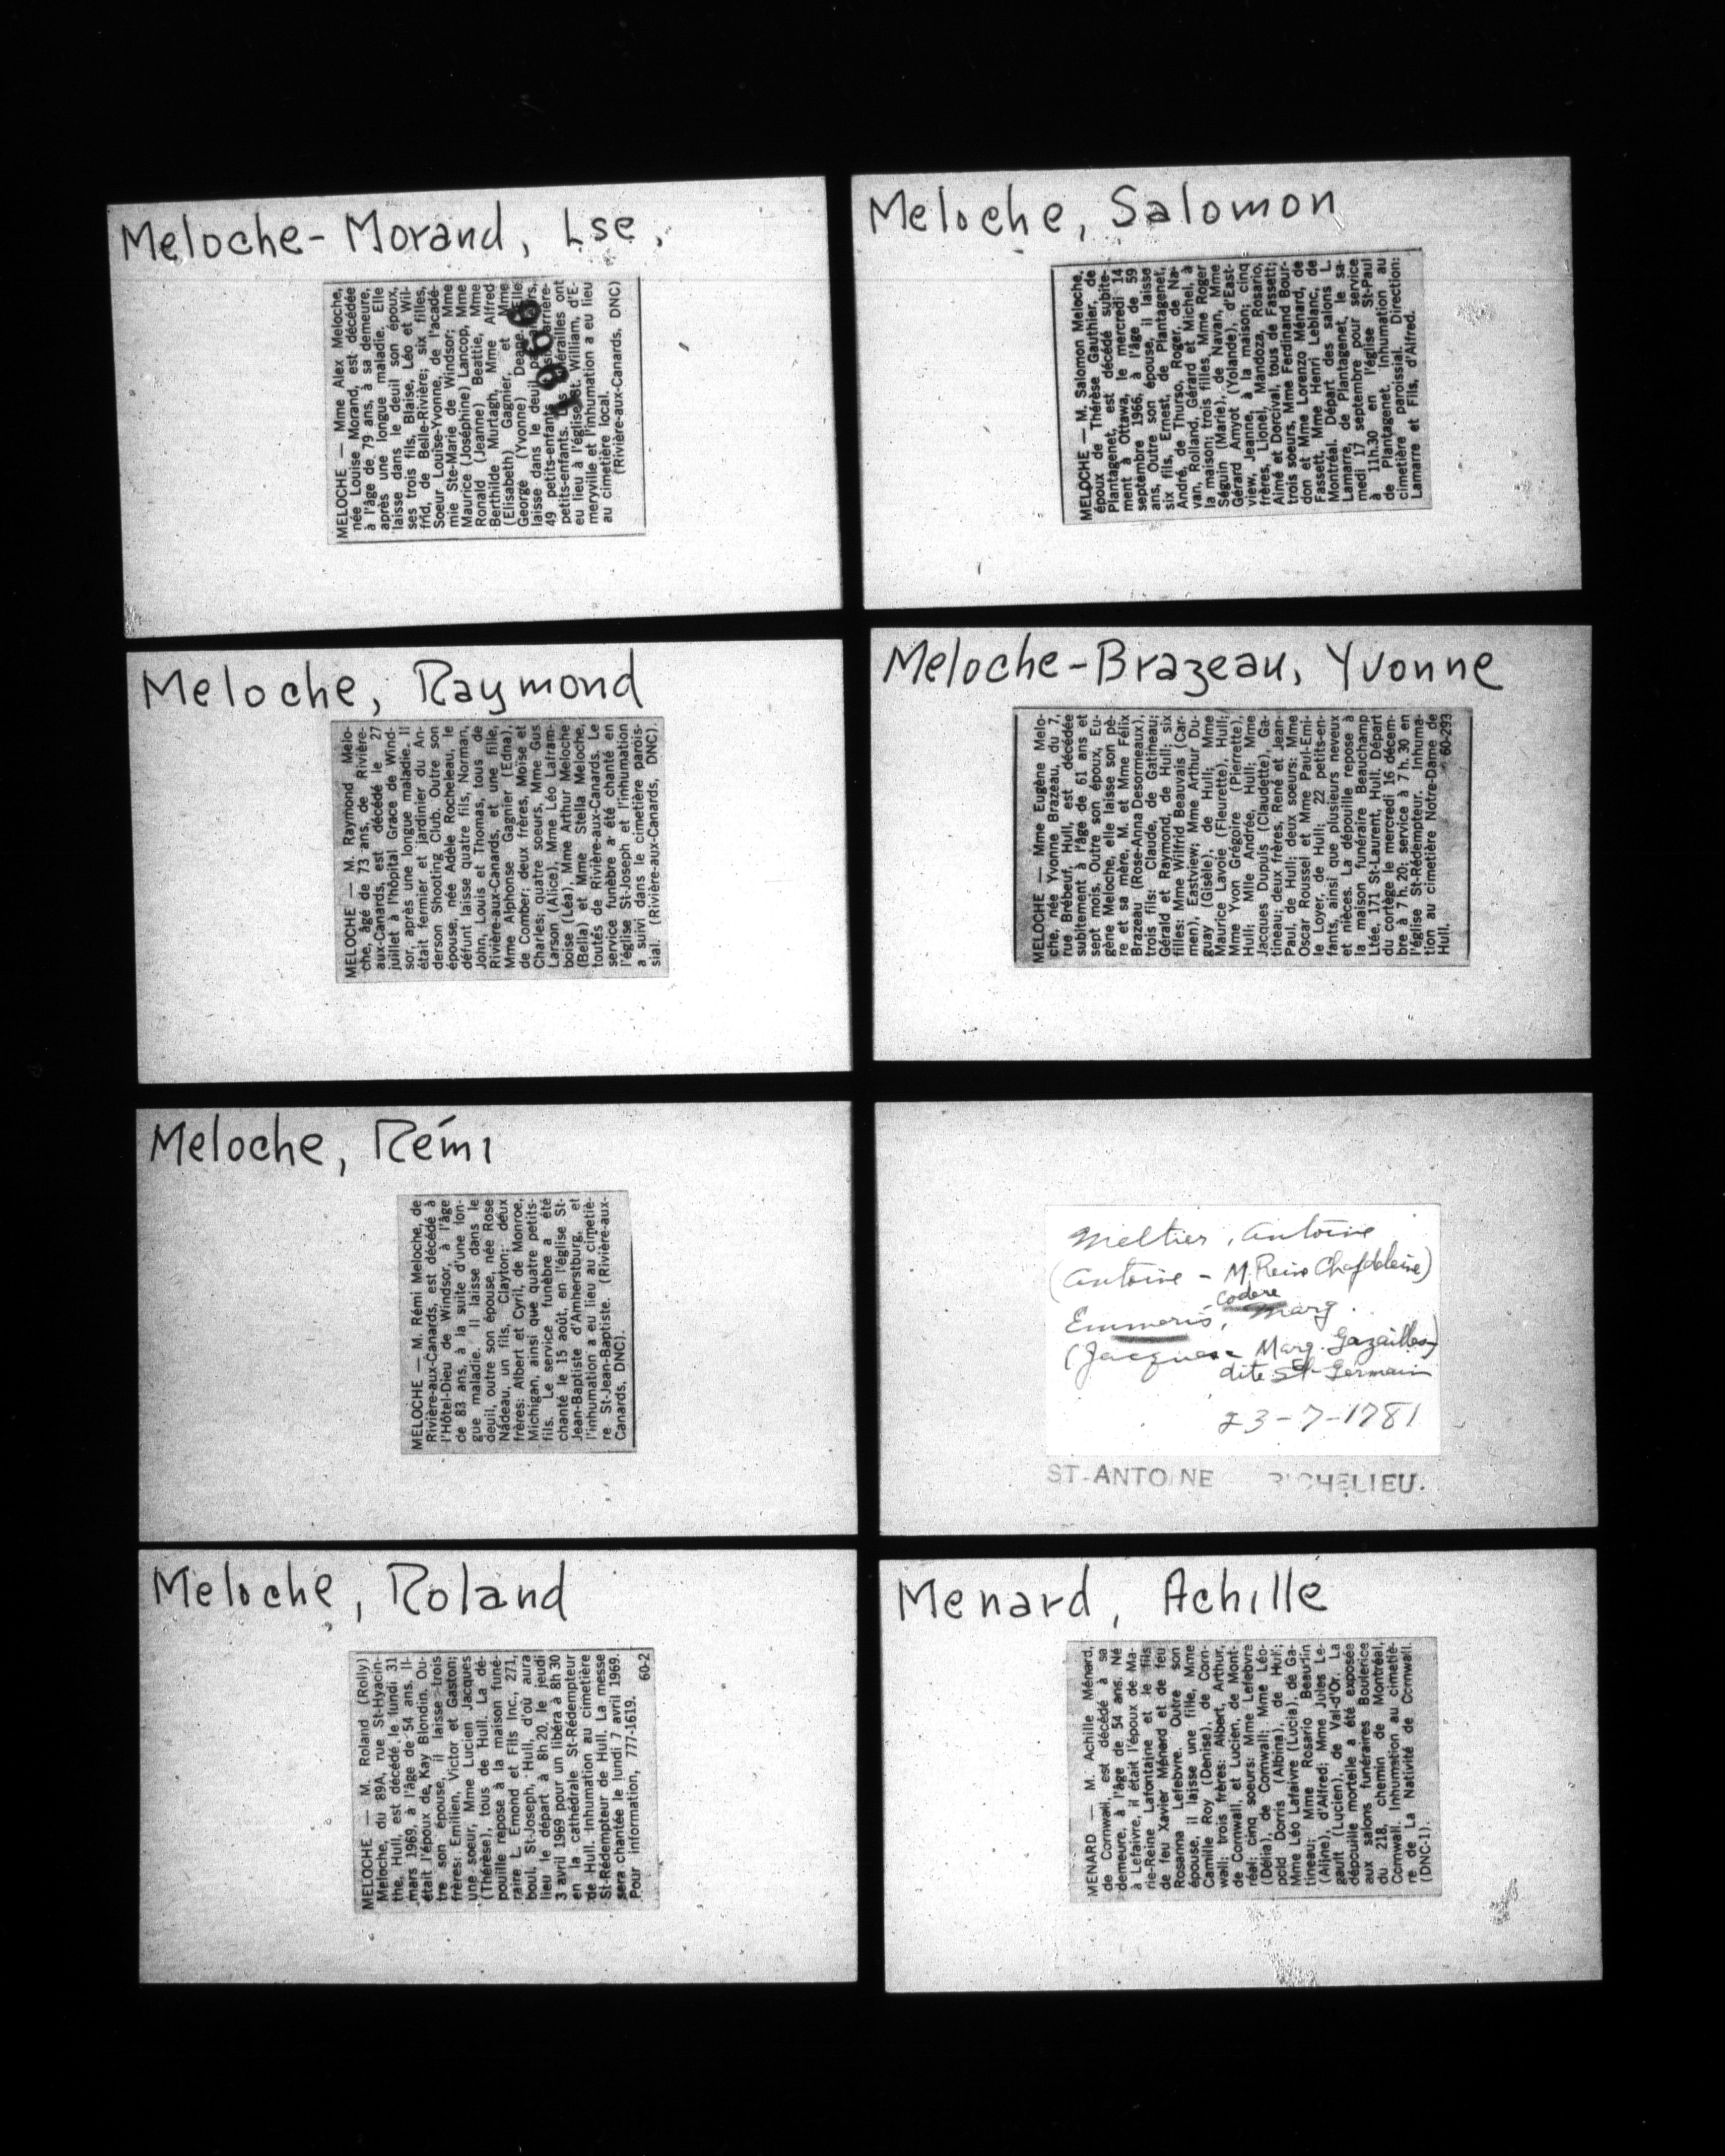 Meloche-Morand, Lse,
MELOCHE — Mme Alex Meloche,
née Louise Morand, est décédée
à l'âge de 79 ans, à sa demeure,
après une longue maladie. Elle
laisse dans le deuil son époux,
ses trois fils, Blaise, Léo et Wil-
frid, de Belle-Rivière; six filles,
Soeur Louise-Yvonne, de l'acadé-
mie Ste-Marie de Windsor; Mme
Maurice (Joséphine) Lancop, Mme
Ronald (Jeanne) Beattie, Mme
Berthilde Murtagh, Mme Alfred
(Elisabeth) Gagnier, et Mme
George (Yvonne) Deane. Elle
laisse dans le deuil
49 petits-enfants arrière-
petits-enfants. Les funérailles ont
eu lieu à l'église St. William, d'E-
meryville et l'inhumation a eu lieu
au cimetière local.
(Rivière-aux-Canards, DNC)
1966
Meloche, Salomon
MELOCHE — M. Salomon Meloche,
époux de Thérèse Gauthier, de
Plantagenet, est décédé subite-
ment à Ottawa, le mercredi 14
septembre 1966, à l'âge de 59
ans, Outre son épouse, il laisse
six fils, Ernest, de Plantagenet,
André, de Thurso, Roger, de Na-
van, Rolland, Gérard et Michel, à
la maison; trois filles, Mme Roger
Séguin (Marie), de Navan, Mme
Gérard Amyot (Yolande), d'East-
view, Jeanne, à la maison; cinq
frères, Lionel, Mandoza, Rosario,
Aimé et Dorcival, tous de Fassett;
trois soeurs, Mme Ferdinand Bour-
don et Mme Lorenzo Ménard, de
Fassett, Mme Henri Leblanc, de
Montréal. Départ des salons L.
Lamarre, de Plantagenet, le sa-
medi 17 septembre pour service
à 11h.30 en l'église St-Paul
de Plantagenet. Inhumation au
cimetière paroissial. Direction:
Lamarre et Fils, d'Alfred.
Meloche, Raymond
MELOCHE — M. Raymond Melo-
che, âgé de 73 ans, de Rivière-
aux-Canards, est décédé le 27
juillet à l'hôpital Grace de Wind-
sor, après une longue maladie. Il
était fermier et jardinier du An-
derson Shooting Club. Outre son
épouse, née Adèle Rocheleau, le
défunt laisse quatre fils, Norman,
John, Louis et Thomas, tous de
Rivière-aux-Canards, et une fille,
Mme Alphonse Gagnier (Edna),
de Comber; deux frères, Moise et
Charles; quatre soeurs, Mme Gus
Larson (Alice), Mme Léo Lafram-
boise (Léa), Mme Arthur Meloche
(Bella) et Mme Stella Meloche,
toutes de Rivière-aux-Canards. Le
service funèbre a été chanté en
l'église St-Joseph et l'inhumation
a suivi dans le cimetière parois-
sial. (Rivière-aux-Canards, DNC).
Meloche-Brazeau, Yvonne
MELOCHE — Mme Eugène Melo-
che, née Yvonne Brazeau, du 7,
rue Brébeuf, Hull, est décédée
subitement à l'âge de 61 ans et
sept mois. Outre son époux, Eu-
gène Meloche, elle laisse son pè-
re et sa mère, M. et Mme Félix
Brazeau (Rose-Anna Desormeaux),
trois fils: Claude, de Gatineau;
Gérald et Raymond, de Hull; six
filles: Mme Wilfrid Beauvais (Car-
men), Eastview; Mme Arthur Du-
guay (Gisèle), de Hull; Mme
Maurice Lavoie (Fleurette), Hull;
Mme Yvon Grégoire (Pierrette),
Hull; Mlle Andrée, Hull; Mme
Jacques Dupuis (Claudette), Ga-
tineau; deux frères, René et Jean-
Paul, de Hull; deux soeurs: Mme
Oscar Roussel et Mme Paul-Emi-
le Loyer, de Hull; 22 petits-en-
fants, ainsi que plusieurs neveux
et nièces. La dépouille repose à
la maison funéraire Beauchamp
Ltée, 171 St-Laurent, Hull. Départ
du cortège le mercredi 16 décem-
bre à 7 h. 20; service à 7 h. 30 en
l'église St-Rédempteur. Inhuma-
tion au cimetière Notre-Dame de
Hull. 60-293
Meloche, Rémi
MELOCHE — M. Rémi Meloche, de
Rivière-aux-Canards, est décédé à
l'Hôtel-Dieu de Windsor, à l'âge
de 83 ans, à la suite d'une lon-
gue maladie. Il laisse dans le
deuil, outre son épouse, née Rose
Nadeau, un fils, Clayton; deux
frères: Albert et Cyril, de Monroe,
Michigan, ainsi que quatre petits-
fils. Le service funèbre a été
chanté le 15 août, en l'église St-
Jean-Baptiste d'Amherstburg, et
l'inhumation a eu lieu au cimetiè-
re St-Jean-Baptiste. (Rivière-aux-
Canards, DNC).
Meltier, Antoine
(Antoine - M. Reine Chapdeleine)
Codere
Emmeris, Marg.
(Jacques - Marg. Gazailles)
dite St-Germain
23-7-1781
ST-ANTOINE RICHELIEU.
Meloche, Roland
MELOCHE — M. Roland (Rolly)
Meloche, du 89A, rue St-Hyacin-
the, Hull, est décédé le lundi 31
mars 1969, à l'âge de 54 ans. Il
était l'époux de Kay Blondin. Ou-
tre son épouse, il laisse trois
frères: Emilien, Victor et Gaston;
une soeur, Mme Lucien Jacques
(Thérèse), tous de Hull. La dé-
pouille repose à la maison funé-
raire L. Emond et Fils Inc., 271,
boul. St-Joseph, Hull, d'où aura
lieu le départ à 8h 20, le jeudi
3 avril 1969 pour un libéra à 8h 30
en la cathédrale St-Rédempteur
de Hull. Inhumation au cimetière
St-Rédempteur de Hull. La messe
sera chantée le lundi 7 avril 1969.
Pour information, 777-1619.
60-2
Menard, Achille
MENARD — M. Achille Ménard,
de Cornwall, est décédé à sa
demeure, à l'âge de 54 ans. Né
à Lefaivre, il était l'époux de Ma-
rie-Reine Lafontaine et le fils
de feu Xavier Ménard et de feu
Rosanna Lefebvre. Outre son
épouse, il laisse une fille, Mme
Camille Roy (Denise), de Corn-
wall; trois frères: Albert, Arthur,
de Cornwall, et Lucien, de Mont-
réal; cinq soeurs: Mme Lefebvre
(Délia), de Cornwall; Mme Léo-
pold Dorris (Albina), de Hull;
Mme Léo Lafaivre (Lucia), de Ga-
tineau; Mme Rosario Beaurin
(Aline), d'Alfred; Mme Jules Le-
gault (Lucien), de Val-d'Or. La
dépouille mortelle a été exposée
aux salons funéraires Boulerice
du 218, chemin de Montréal,
Cornwall. Inhumation au cimetiè-
re de La Nativité de Cornwall.
(DNC-1).